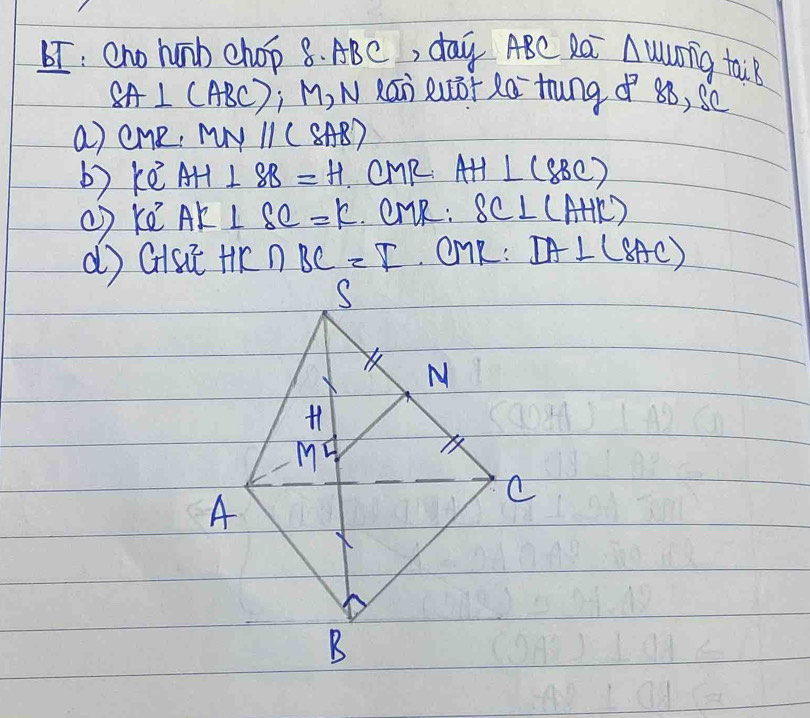 BT: Cho hình chóp S.ABC, đáy ABC là Δ vuông tại B
SA ⊥ (ABC); M, N lần lượt là trung đ' SB, SC
a) CMR: MN // (SAB)
b) Kẻ AH ⊥ SB = H. CMR: AH ⊥ (SBC)
c) Kẻ AK ⊥ SC = K. CMR: SC ⊥ (AHK)
d) Gsử HK ∩ BC = I. CMR: IA ⊥ (SAC)
S
N
H
M
A
C
B